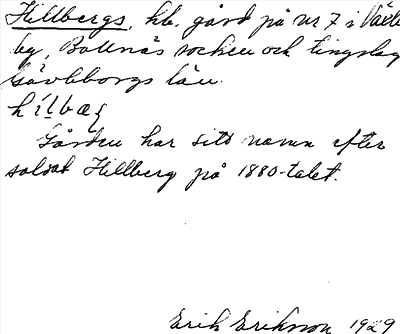 Hillbergs, hb. gård på nr 7 i Växbo
by, Bollnäs socken och tingslag
Gävleborgs län.
Gården har sitt namn efter
soldat Hillberg på 1880-talet.
Erik Erikson 1929